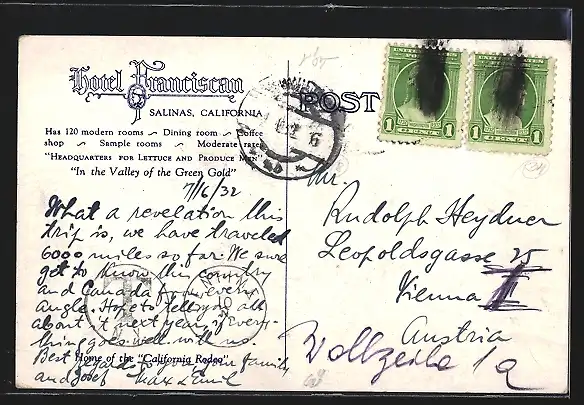 Hotel Franciscan
SALINAS, CALIFORNIA
Has 120 modern rooms ~ Dining room ~ Coffee
shop ~ Sample rooms ~ Moderate rates
"HEADQUARTERS FOR LETTUCE AND PRODUCE MEN"
"In the Valley of the Green Gold"
7/6/32
What a revelation this
trip is, we have traveled
6000 miles so far. We sure
get to know this country
and Canada from every
angle. Hope to tell you all
about it next year, if every-
thing goes well with us.
Best regards to you, your family
and Josef Max & Emil
Home of the "California Rodeo"
POST
1 1
1 1
Mr.
Rudolph Heydner
Leopoldsgasse 25
Vienna II
Austria
Wollzeile 1a
T